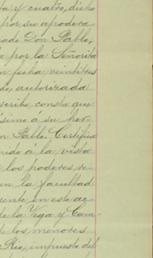 ta y cuatro, dicho
por su apodera
rado Don Pablo,
a por la Señorita
n fecha veintitres
do, autorizada
scribe, consta que
simo a su her-
n Pablo. Certifico
endo á la vista
los poderes re
en la facultad
mente en este ac
de la Vega y Cam
de los menores
Rio, impuesto del